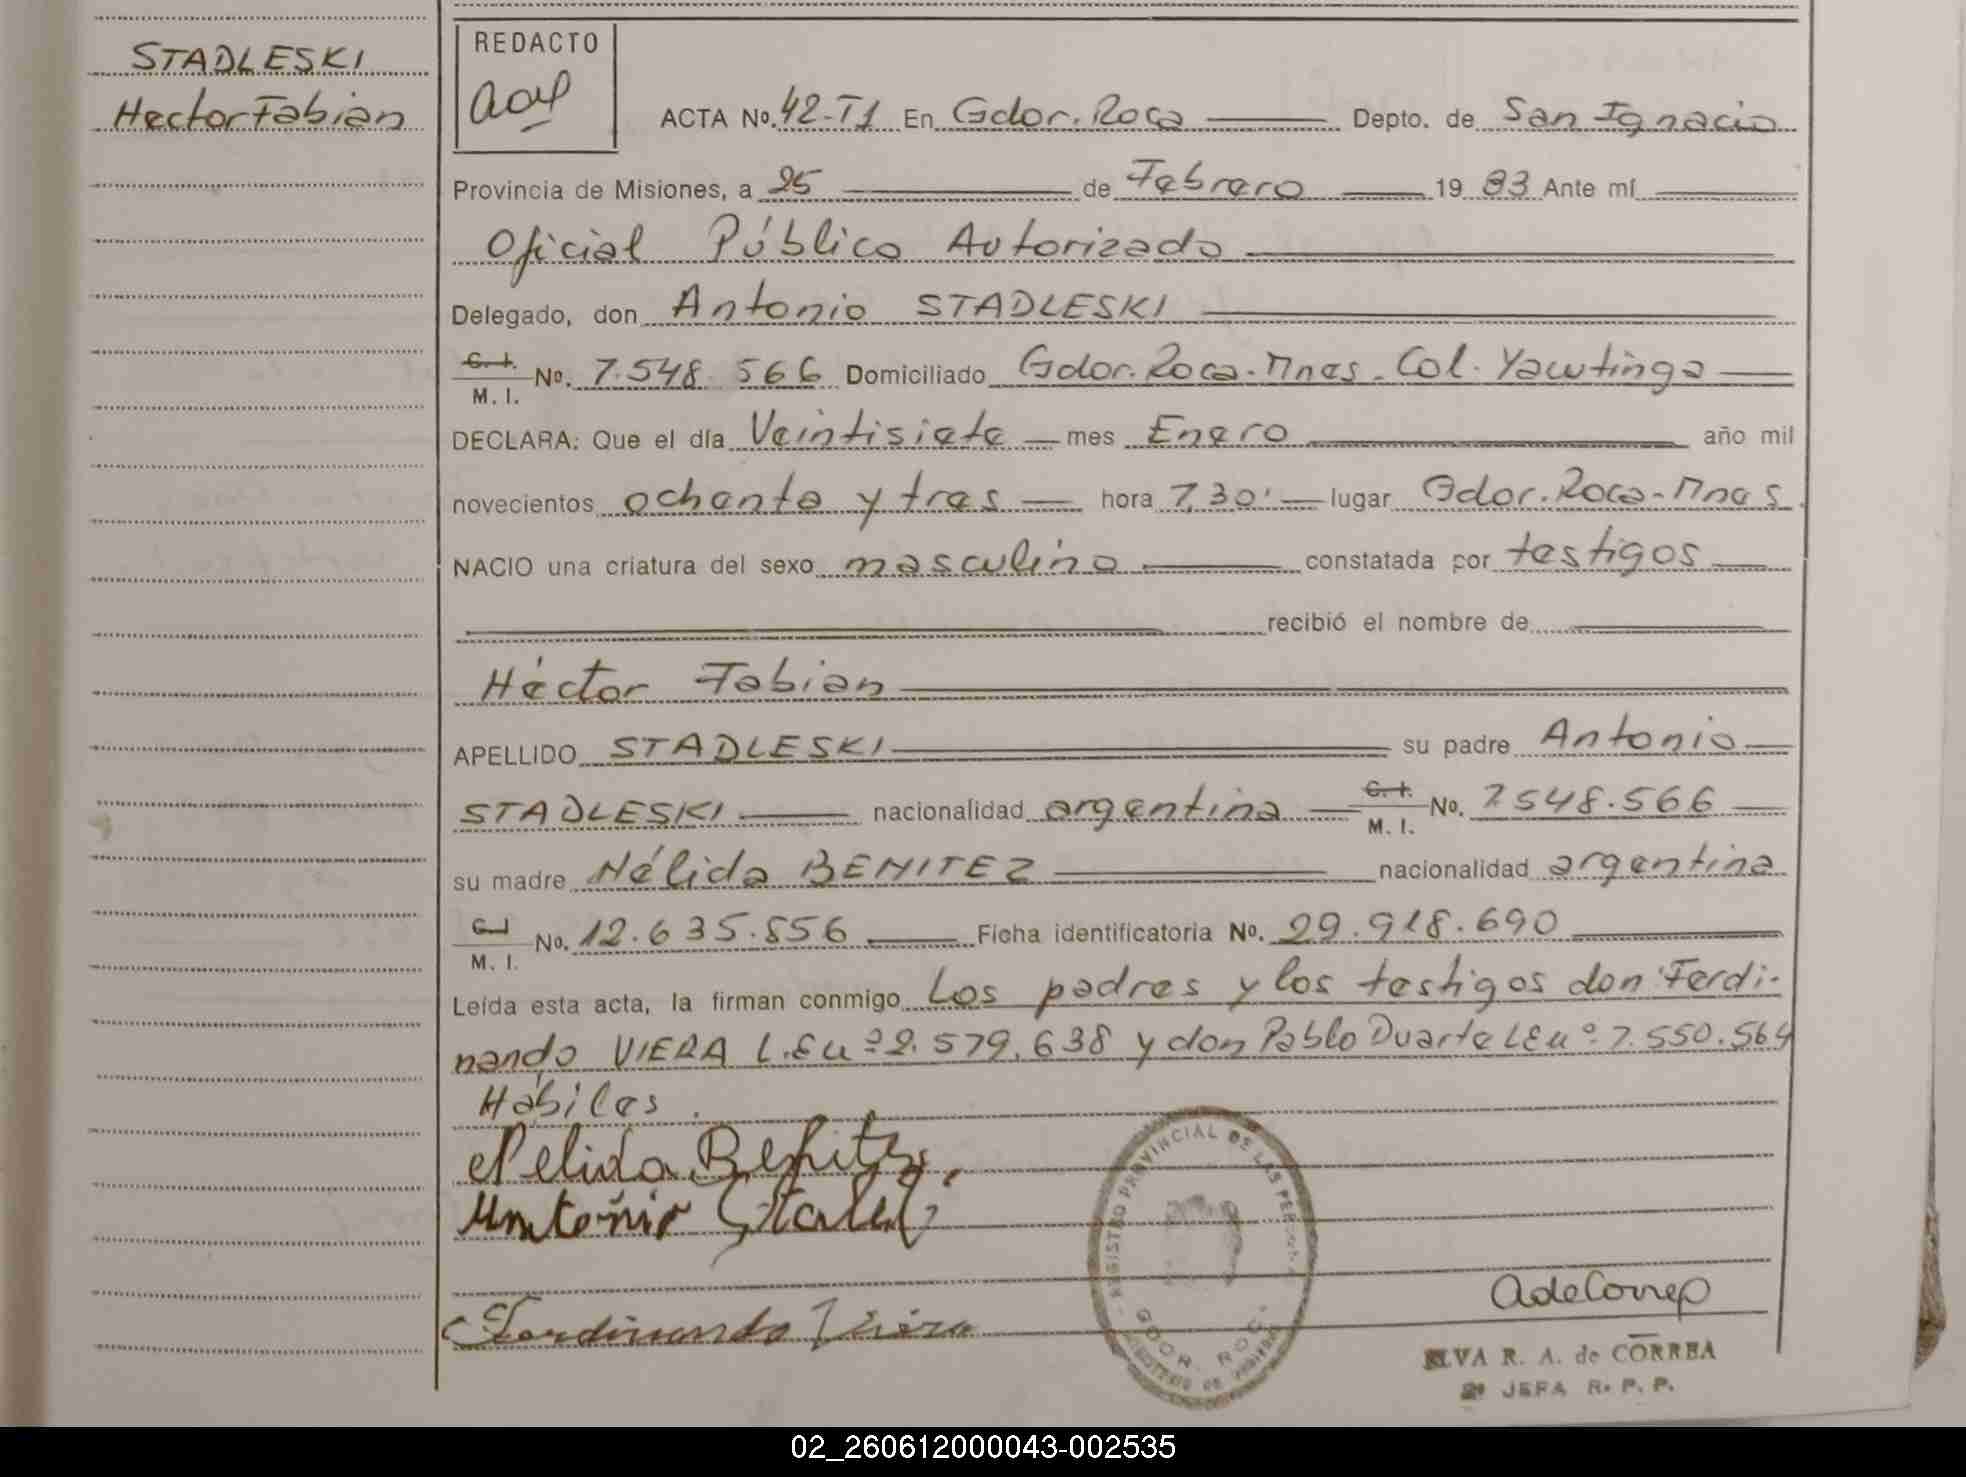 STADLESKI
Hector Fabian
REDACTO
ACTA No. 42-T1 En Gdor. Roca Depto. de San Ignacio
Provincia de Misiones, a 25 de Febrero 19 83 Ante mí
Oficial Público Autorizado
Delegado, don Antonio STADLESKI
C. I.
M. I. No. 7.548.566 Domiciliado Gdor. Roca - Mnes - Col. Yacutinga
DECLARA: Que el día Veintisiete mes Enero año mil
novecientos ochenta y tres hora 7,30' lugar Gdor. Roca - Mnes.
NACIO una criatura del sexo masculino constatada por testigos
recibió el nombre de
Héctor Fabian
APELLIDO STADLESKI su padre Antonio
STADLESKI nacionalidad argentina C. I.
M. I. No. 7.548.566
su madre Nélida BENITEZ nacionalidad argentina
C. I.
M. I. No. 12.635.856 Ficha identificatoria No. 29.918.690
Leída esta acta, la firman conmigo Los padres y los testigos don Ferdi-
nando VIERA L.E nº 2.579.638 y don Pablo Duarte LE nº 7.550.564
Hábiles.
Nelida Benitez
Antonio
Ferdinando Viera
REGISTRO PROVINCIAL DE LAS PERSONAS
GDOR. ROCA
ELVA R. A. de CORREA
2º JEFA R. P. P.
02_260612000043-002535